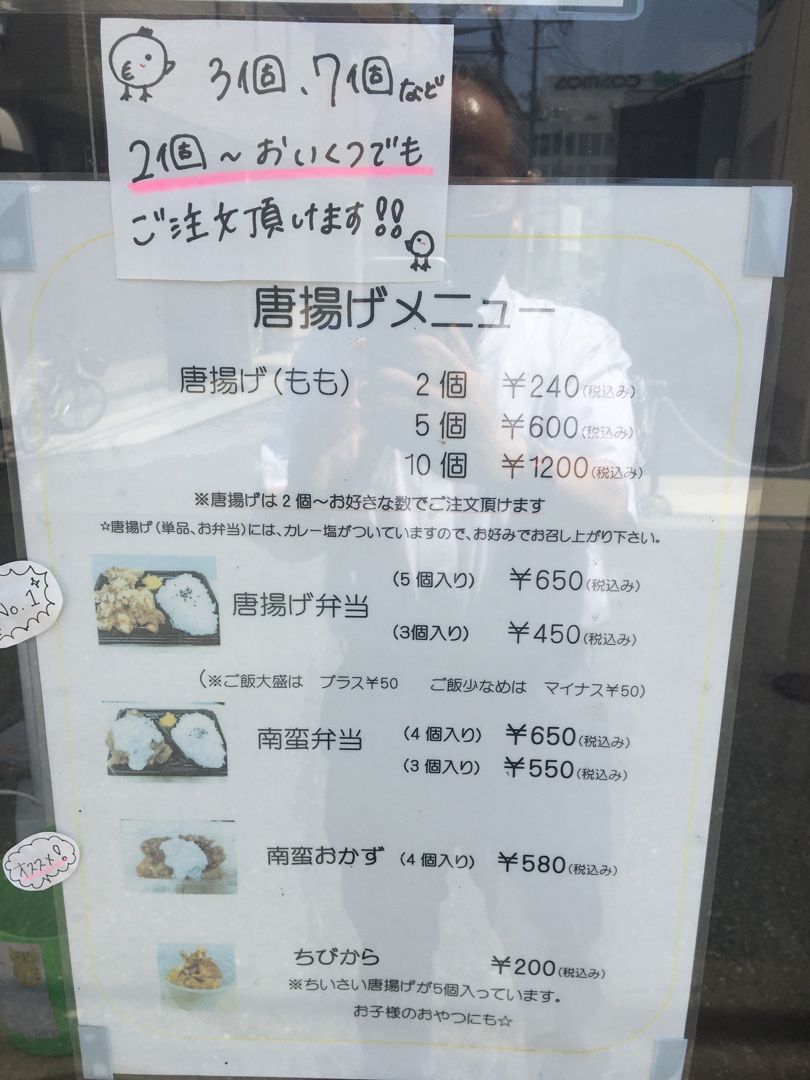 COSMOS
3個、7個など
2個～おいくつでも
ご注文頂けます!!
唐揚げメニュー
唐揚げ(もも) 2個 ￥240(税込み)
5個 ￥600(税込み)
10個 ￥1200(税込み)
※唐揚げは2個～お好きな数でご注文頂けます
☆唐揚げ(単品、お弁当)には、カレー塩がついていますので、お好みでお召し上がり下さい。
No.1
唐揚げ弁当 (5個入り) ￥650(税込み)
(3個入り) ￥450(税込み)
(※ご飯大盛は プラス￥50 ご飯少なめは マイナス￥50)
南蛮弁当 (4個入り) ￥650(税込み)
(3個入り) ￥550(税込み)
オススメ!
南蛮おかず (4個入り) ￥580(税込み)
ちびから ￥200(税込み)
※ちいさい唐揚げが5個入っています。
お子様のおやつにも☆